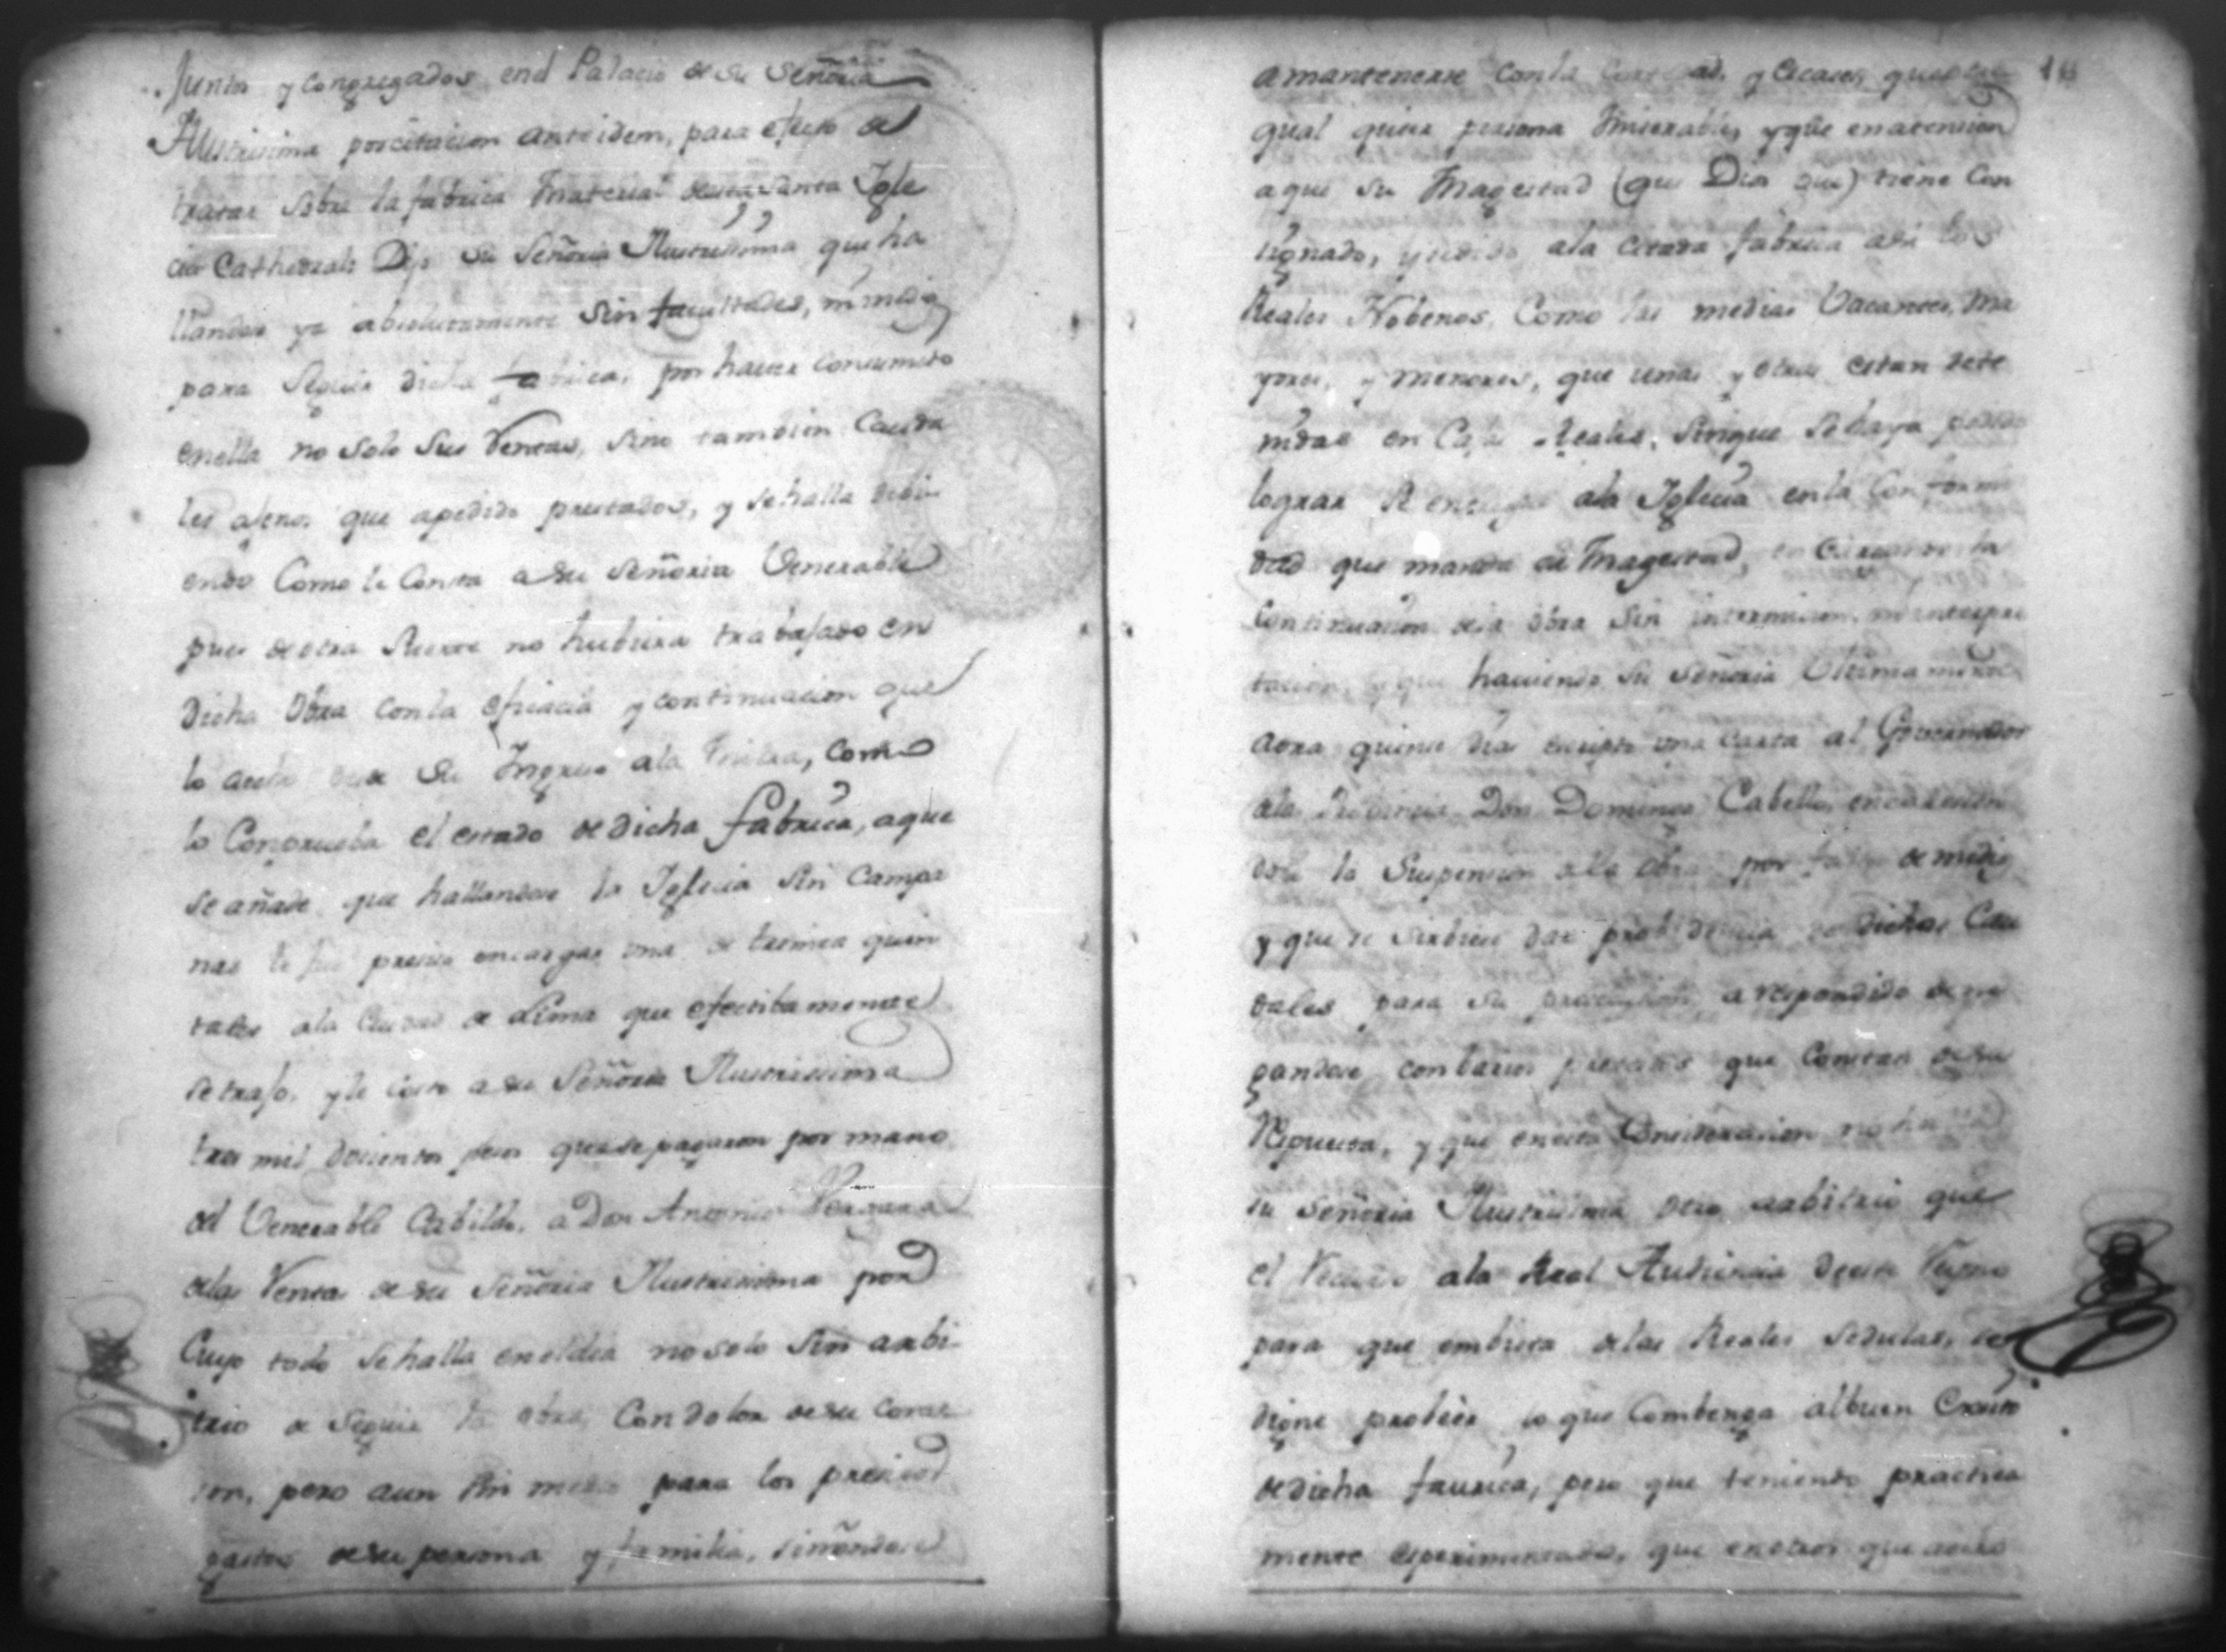 Junta y congregados en el Palacio de su Señoria
Illustrisima por citacion ante idem, para efecto de
tratar sobre la fabrica material de esta Santa Igle
cia Cathedral: Dijo su Señoria Illustrissima que ha
llandose ya absolutamente sin facultades, ni medios
para seguir dicha fabrica, por haver consumido
en ella no solo sus Rentas, sino tambien Cauda
les ajenos que a pedido prestados, y se halla debi
endo como le consta a su Señoria Venerable
pues de otra suerte no hubiera trabajado en
dicha obra con la eficacia y continuacion que
lo desde su Ingreso a la como
lo comprueba el estado de dicha fabrica, a que
se añade que hallandose la Iglecia sin campa
nas le fue preciso encargar una de treinta quin
tales a la Ciudad de Lima que efectibamente
se trajo, y le costo a su Señoria Illustrissima
tres mil docientos pesos que se pagaron por mano
del Venerable Cabildo, a Don Antonio Vergara
de las Rentas de su Señoria Illustrissima por
cuyo todo se halla en el dia no solo sin arbi
trio de seguir la obra, con dolor de su cora
son, pero aun sin medios para los precisos
gastos de su persona y familia, siñendose
a mantenerse con la y que
qual quiera persona miserable, y que en atencion
a que su Magestad (que Dios gue) tiene con
signado, y cedido a la citada fabrica asi los
Reales Nobenos, como las medias Vacantes, ma
yores, y menores, que unas y otras estan dete
nidas en Cajas Reales, sin que se haya podido
lograr se entreguen a la Iglecia en la conformi
dad que manda su Magestad, la
continuacion de la obra sin intermicion, ni interpre
tacion, y que haviendo su Señoria
aora quince dias escripto una carta al Governador
de la Provincia Don Domingo Cabello,
la suspencion de la obra por falta de medios
y que se sirbiese dar probidencia de dichos Cau
dales para su a respondido
con barios pretextos que constan de su
Respuesta, y que en esta consideracion no ha
su Señoria Illustrissima otro arbitrio que
el a la Real Audiencia de este Reyno
para que en bista de las Reales sedulas, se
digne probeer lo que combenga al buen
de dicha fabrica, pero que teniendo practica
mente esperimentado, que en otros que